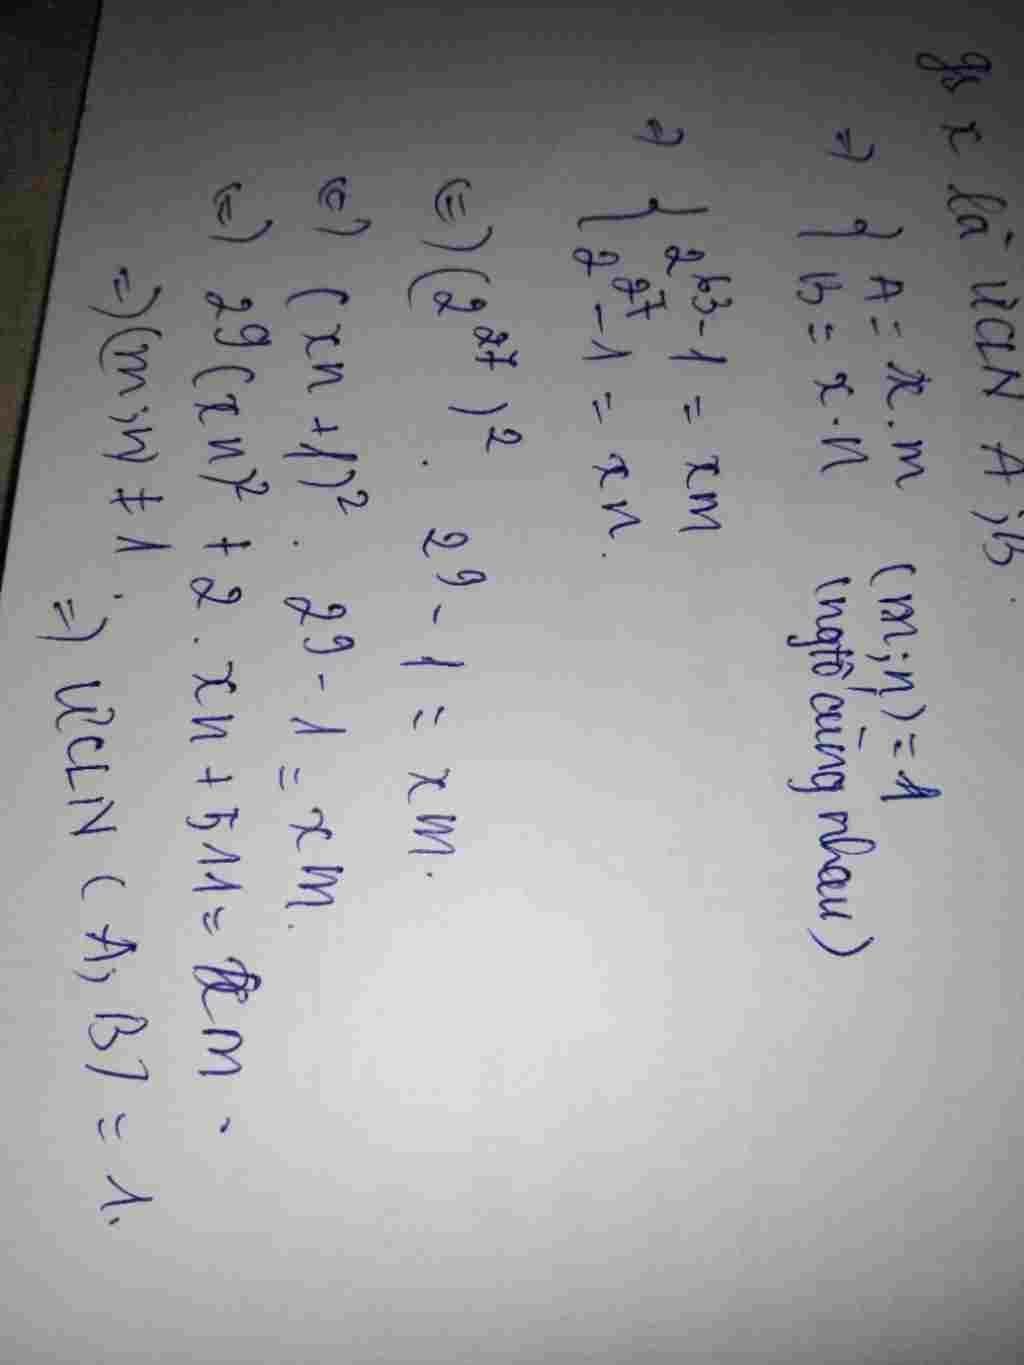 gs x là ƯCLN A ; B.
=> { A = x.m (m;n) = 1
B = x.n (ngtố cùng nhau)
=> { 2^63 - 1 = xm
2^27 - 1 = xn.
(=) (2^27)^2 . 2^9 - 1 = xm.
(=) (xn + 1)^2 . 2^9 - 1 = xm.
(=) 2^9 (xn)^2 + 2 . xn + 511 = xm.
=) (m;n) ≠ 1.
=) ƯCLN (A, B) = 1.